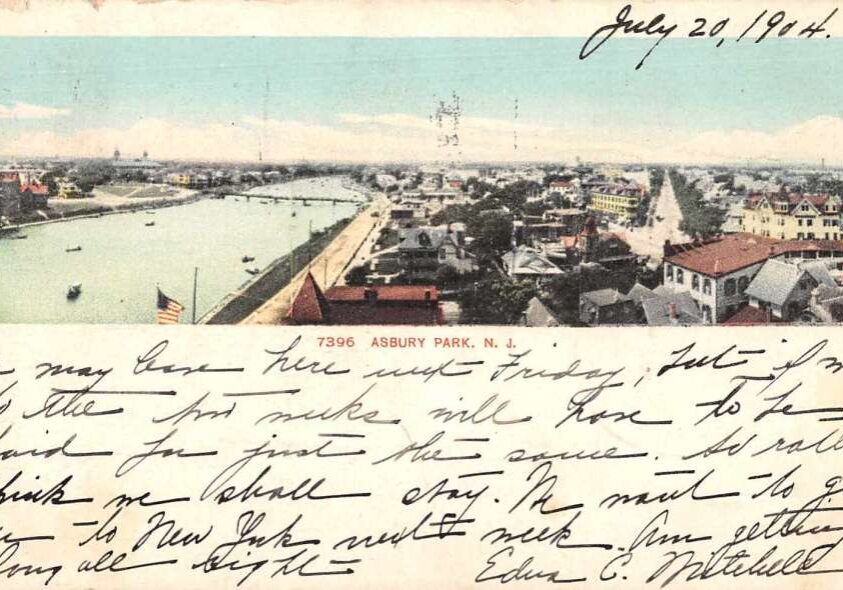 July 20, 1904.
7396 ASBURY PARK, N. J.
may leave here next Friday, but if
the two weeks will have to be
paid for just the same. So
think we shall stay. We want to
to New York next week. Am getting
along all right Edna C. Mitchell